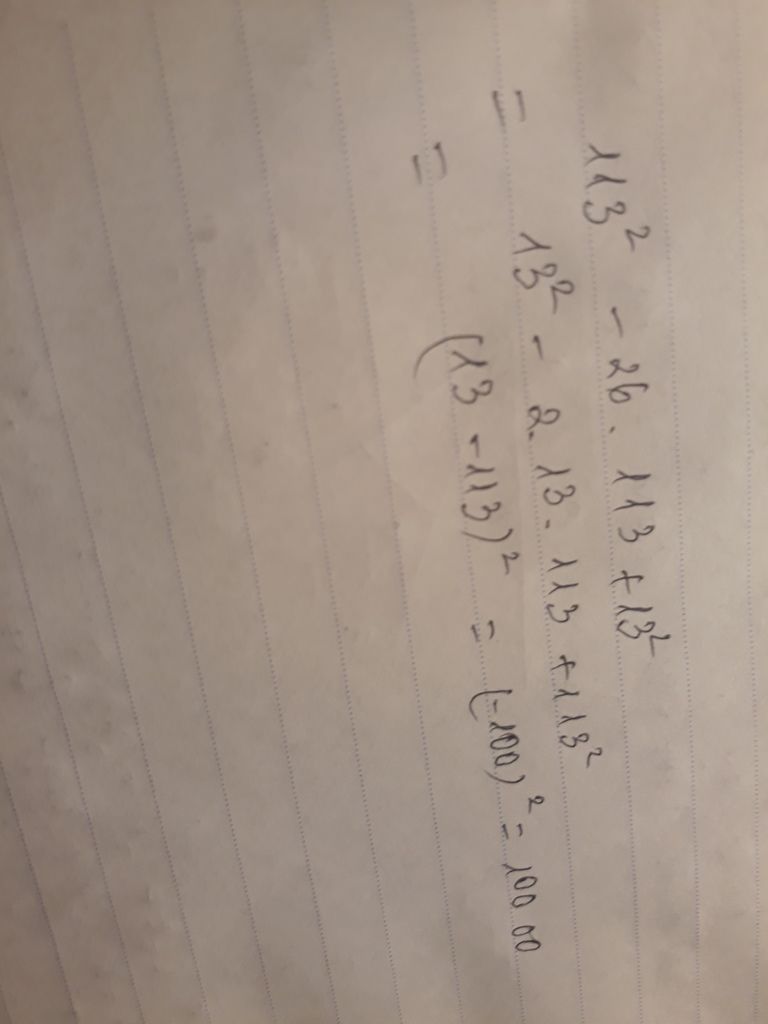 113² - 26. 113 + 13²
= 13² - 2. 13. 113 + 113²
= (13 - 113)² = (-100)² = 100 00